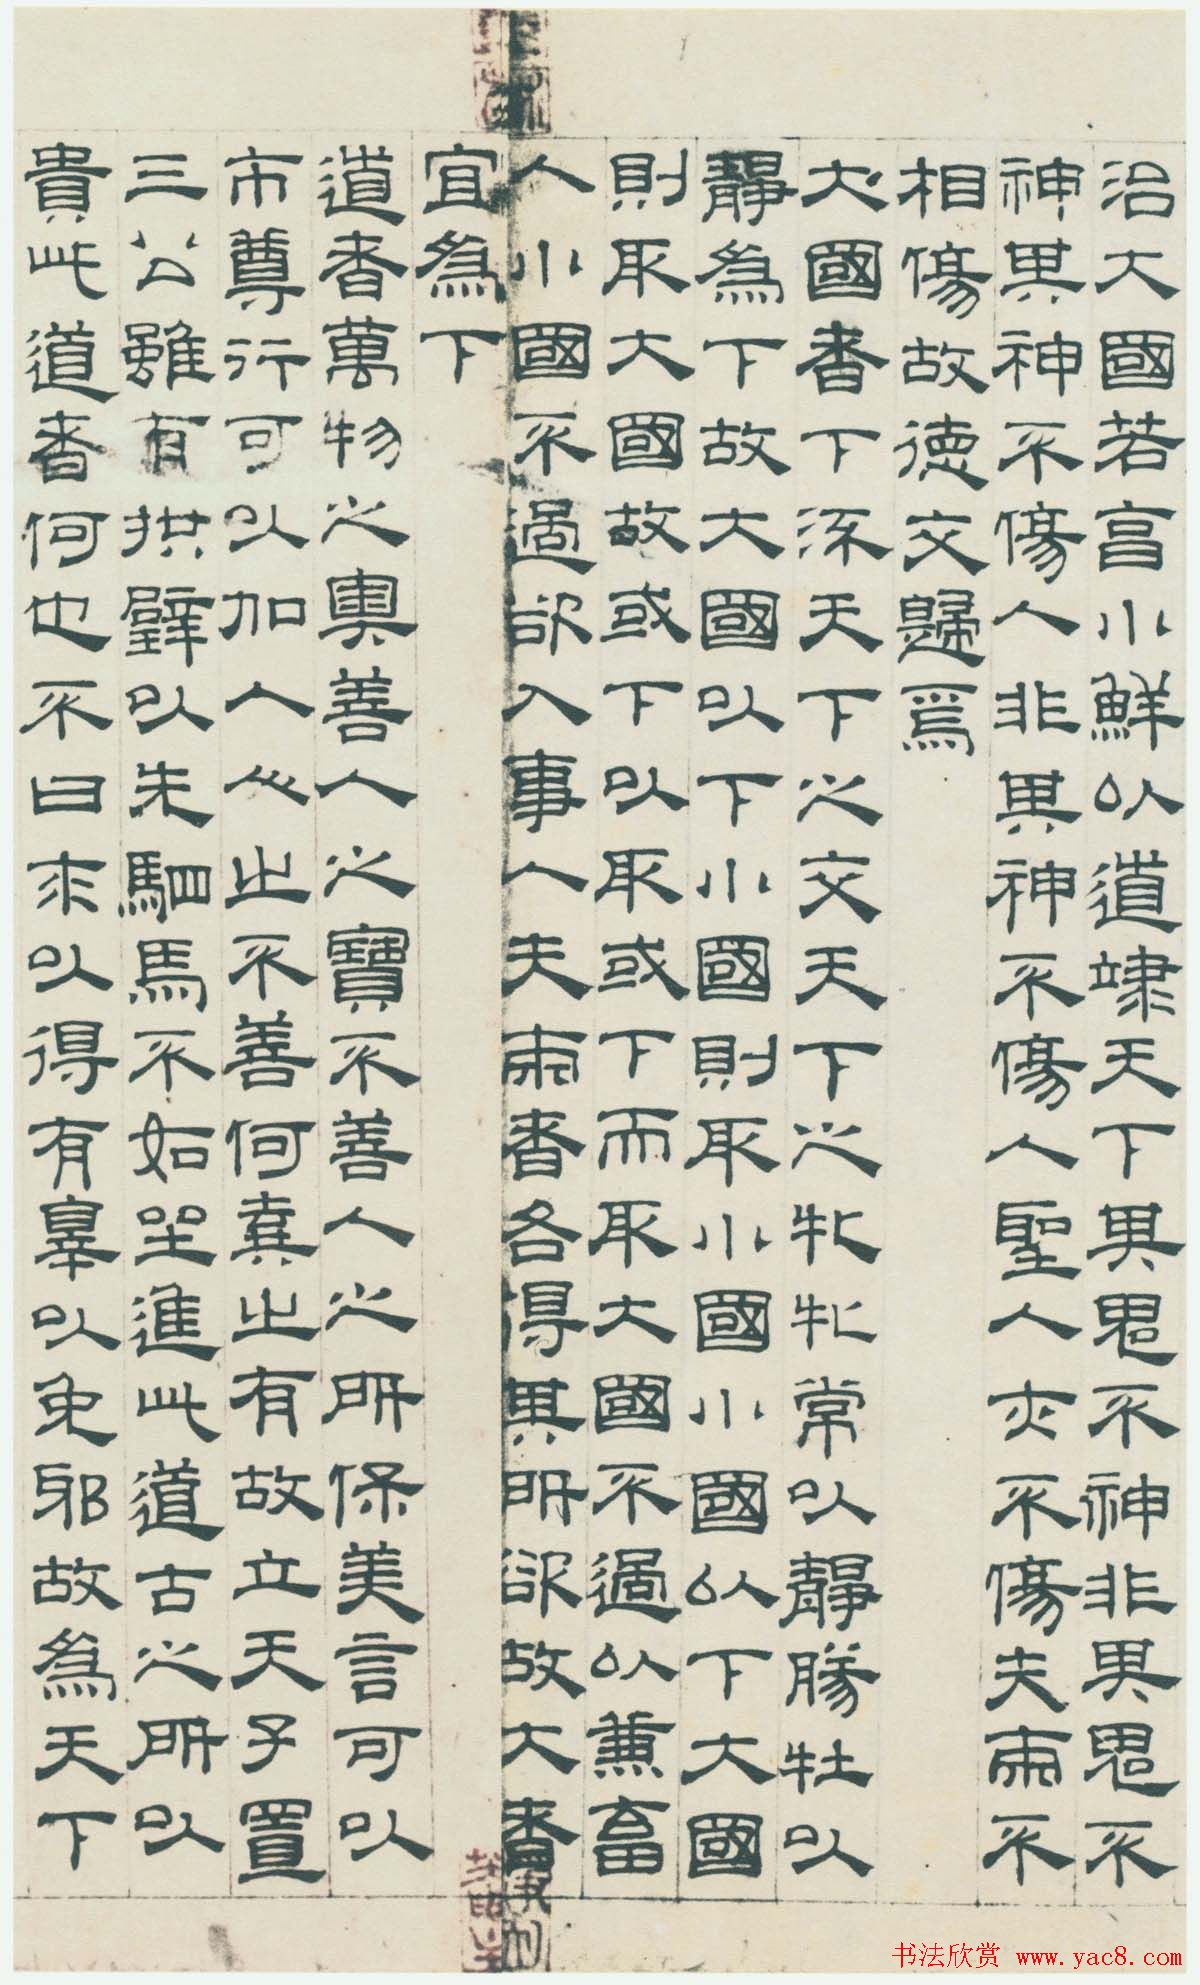 治大國若亯小鮮以道䇐天下其鬼不神非其鬼不
神其神不傷人非其神不傷人聖人亦不傷夫兩不
相傷故德交歸焉
大國者下流天下之交天下之牝牝常以靜勝牡以
靜為下故大國以下小國則取小國小國以下大國
則取大國故或下以取或下而取大國不過以兼畜
人小國不過欲入事人夫兩者各得其所欲故大者
宜為下
道者萬物之奧善人之寶不善人之所保美言可以
市尊行可以加人人之不善何棄之有故立天子置
三公雖有拱璧以先駟馬不如坐進此道古之所以
貴此道者何也不曰求以得有辠以免邪故為天下
书法欣赏 www.yac8.com